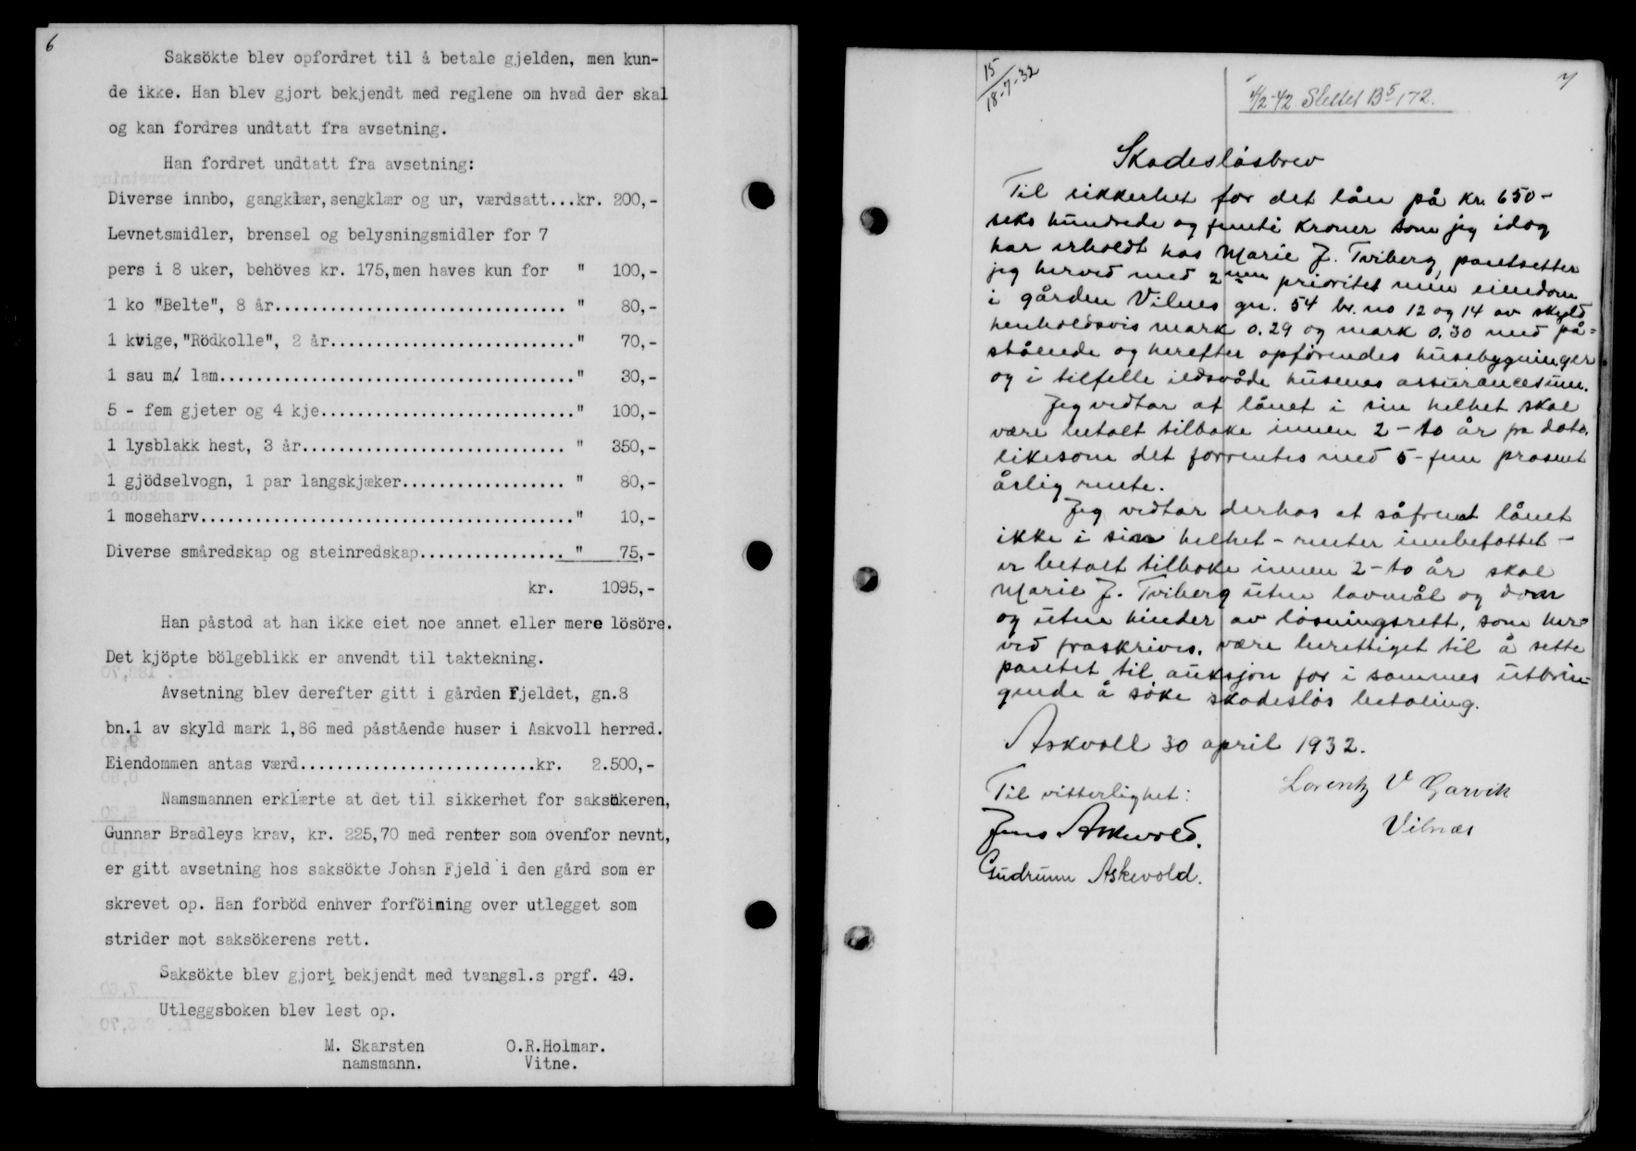 6
Saksökte blev opfordret til å betale gjelden, men kun-
de ikke. Han blev gjort bekjendt med reglene om hvad der skal
og kan fordres undtatt fra avsetning.
Han fordret undtatt fra avsetning:
Diverse innbo, gangklær, sengklær og ur, værdsatt...kr. 200,-
Levnetsmidler, brensel og belysningsmidler for 7
pers i 8 uker, behöves kr. 175,men haves kun for " 100,-
1 ko "Belte", 8 år................................ " 80,-
1 kvige,"Rödkolle", 2 år..........................." 70,-
1 sau m/ lam......................................." 30,-
5 - fem gjeter og 4 kje............................" 100,-
1 lysblakk hest, 3 år............................. " 350,-
1 gjödselvogn, 1 par langskjæker.................. " 80,-
1 moseharv........................................." 10,-
Diverse småredskap og steinredskap................ " 75,-
kr. 1095,-
Han påstod at han ikke eiet noe annet eller mere lösöre.
Det kjöpte bölgeblikk er anvendt til taktekning.
Avsetning blev derefter gitt i gården Fjeldet, gn.8
bn.1 av skyld mark 1,86 med påstående huser i Askvoll herred.
Eiendommen antas værd..........................kr. 2.500,-
Namsmannen erklærte at det til sikkerhet for saksökeren,
Gunnar Bradleys krav, kr. 225,70 med renter som ovenfor nevnt,
er gitt avsetning hos saksökte Johan Fjeld i den gård som er
skrevet op. Han forböd enhver forföining over utlegget som
strider mot saksökerens rett.
Saksökte blev gjort bekjendt med tvangsl.s prgf. 49.
Utleggsboken blev lest op.
M. Skarsten O.R.Holmar.
namsmann. Vitne.
15/18-7-32
7
4/2-42 Slettet B5-172.
Skadesløsbrev
Til sikkerhet for det lån på kr. 650-
seks hundrede og femti kroner som jeg idag
har erholdt hos Marie J. Tviberg, pantsetter
jeg herved med 2nen prioritet min eiendom
i gården Vilnes gn. 54 br. no 12 og 14 av skyld
henholdsvis mark 0.29 og mark 0.30 med på=
stående og herefter opførendes husebygninger
og i tilfelle ildsvåde husenes assurancesum.
Jeg vedtar at lånet i sin helhet skal
være betalt tilbake innen 2-to år fra dato,
likesom det forrentes med 5-fem prosent
årlig rente.
Jeg vedtar derhos at såfremt lånet
ikke i sin helhet - renter innbefattet -
er betalt tilbake innen 2-to år skal
Marie J. Tviberg uten lovmål og dom
og uten hinder av løsningsrett, som her=
ved fraskrives, være berettiget til å sette
pantet til auksjon for i sammes utbrin=
gende å søke skadesløs betaling.
Askvoll 30 april 1932.
Lorentz V Garvik
Vilnæs
Til vitterlighet:
Jens Askevold.
Gudrunn Askevold.